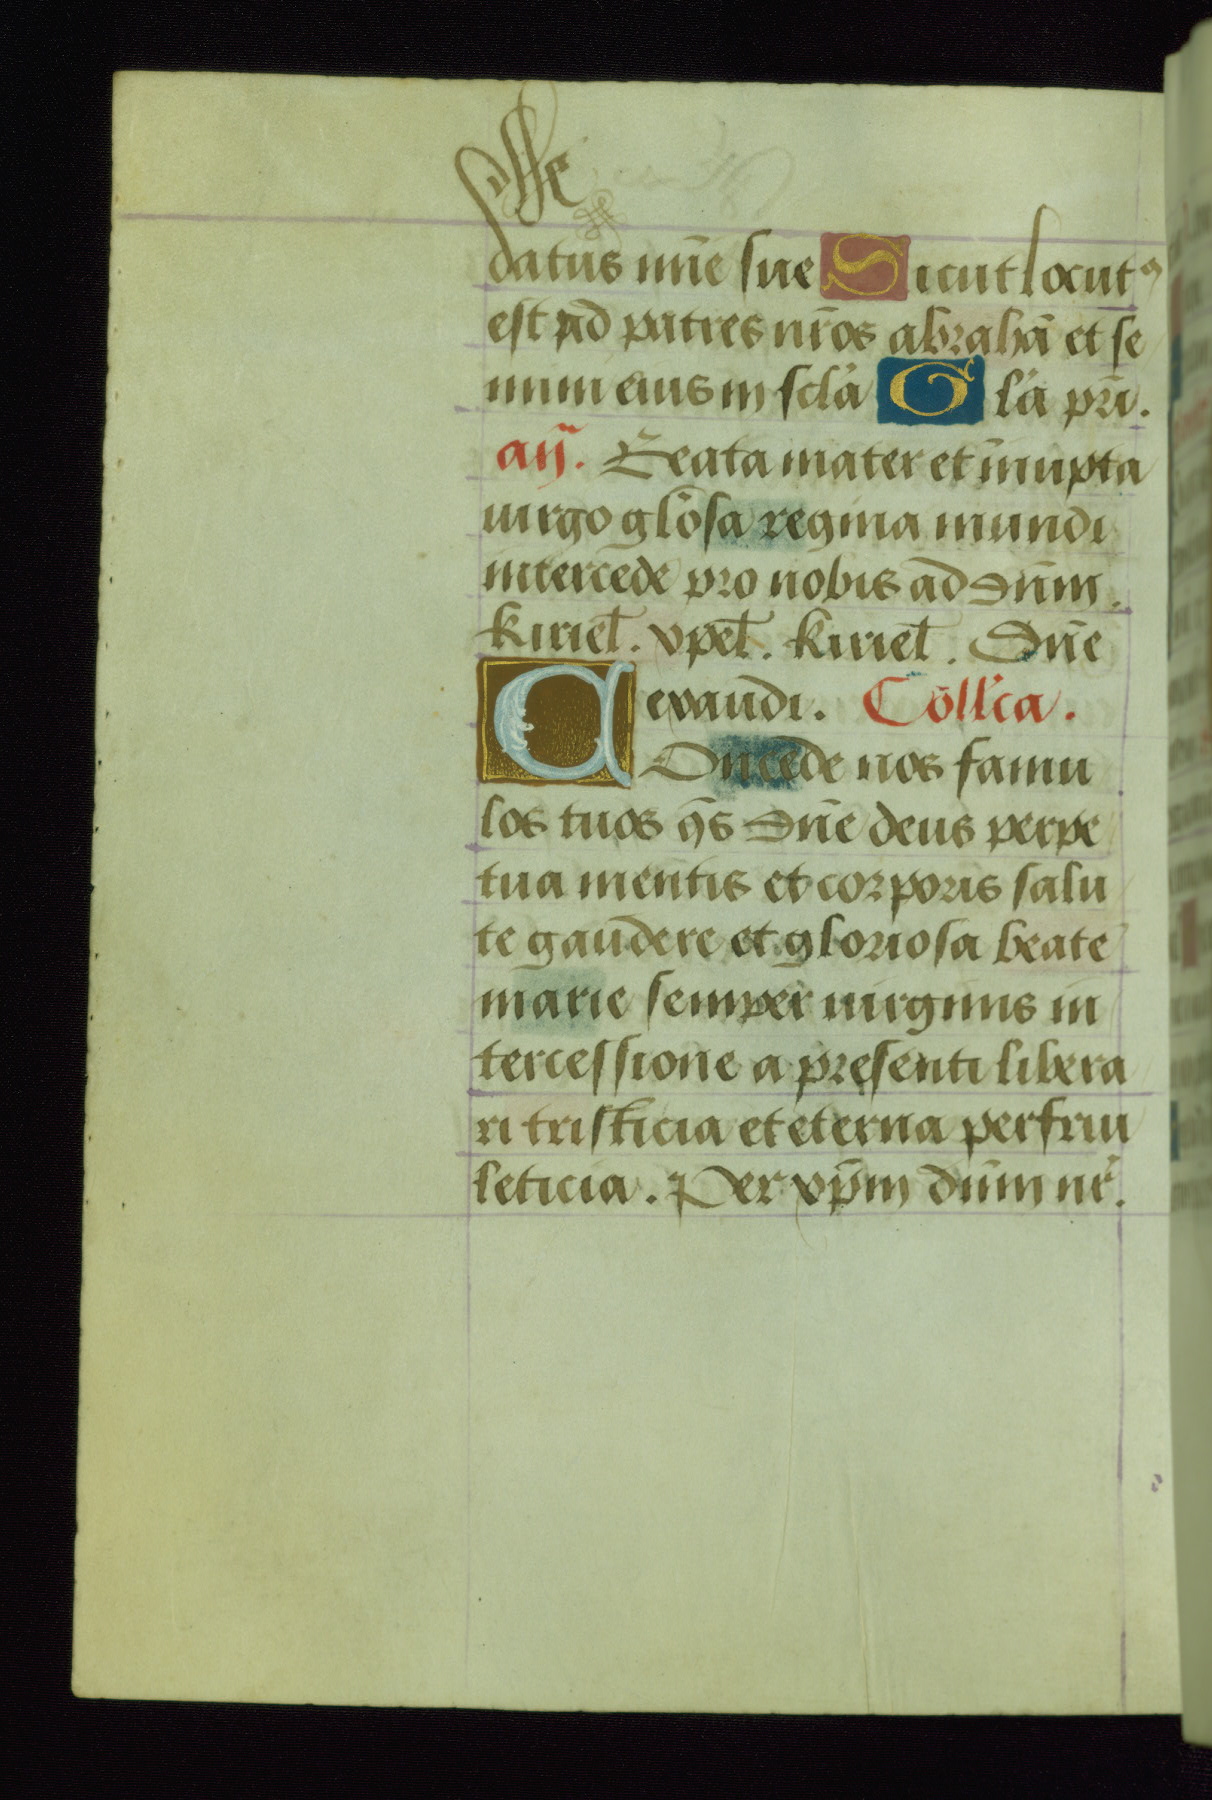 datus mīe sue Sicut locutꝰ
est ad patres nr̄os abrahā et se
mini eius in scl̄a Gl̄a pr̄i.
añ. Beata mater et īnupta
uirgo glōsa regina mundi
intercede pro nobis ad dn̄m.
kiriel̄. xp̄el̄. kiriel̄. Dn̄e
exaudi. Collc̄a.
Concede nos famu
los tuos q̄s dn̄e deus perpe
tua mentis et corporis salu
te gaudere et gloriosa beate
marie semper uirginis in
tercessione a presenti libera
ri tristicia et eterna perfrui
leticia. Per xp̄m dn̄m nr̄.